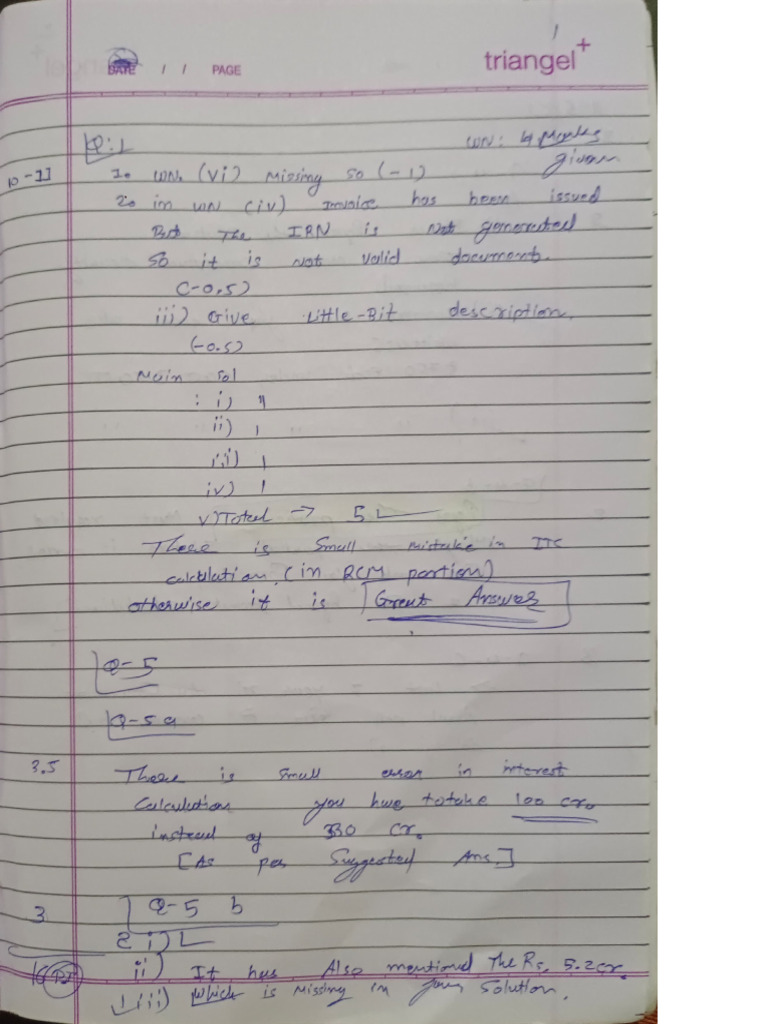 1
triangel+
DATE / / PAGE
Q:1 WN: 4 Marks
given
10-11 1. WN. (vi) Missing so (-1)
2. in WN (iv) Invoice has been issued
But The IRN is Not generated
So it is Not valid document.
(-0.5)
iii) Give Little-Bit description.
(-0.5)
Main sol
: i)
ii) 1
iii) 1
iv) 1
v) Total → 5
There is small mistake in ITC
calculation. (in RCM portion)
otherwise it is Great Answer
Q-5
Q-5 a
3.5 There is small error in interest
Calculation you have to take 100 cr.
instead of 330 cr.
[As per Suggested Ans.]
3 Q-5 b
2 i)
ii) It has Also mentioned The Rs. 5.2cr.
1 iii) which is Missing in your Solution.